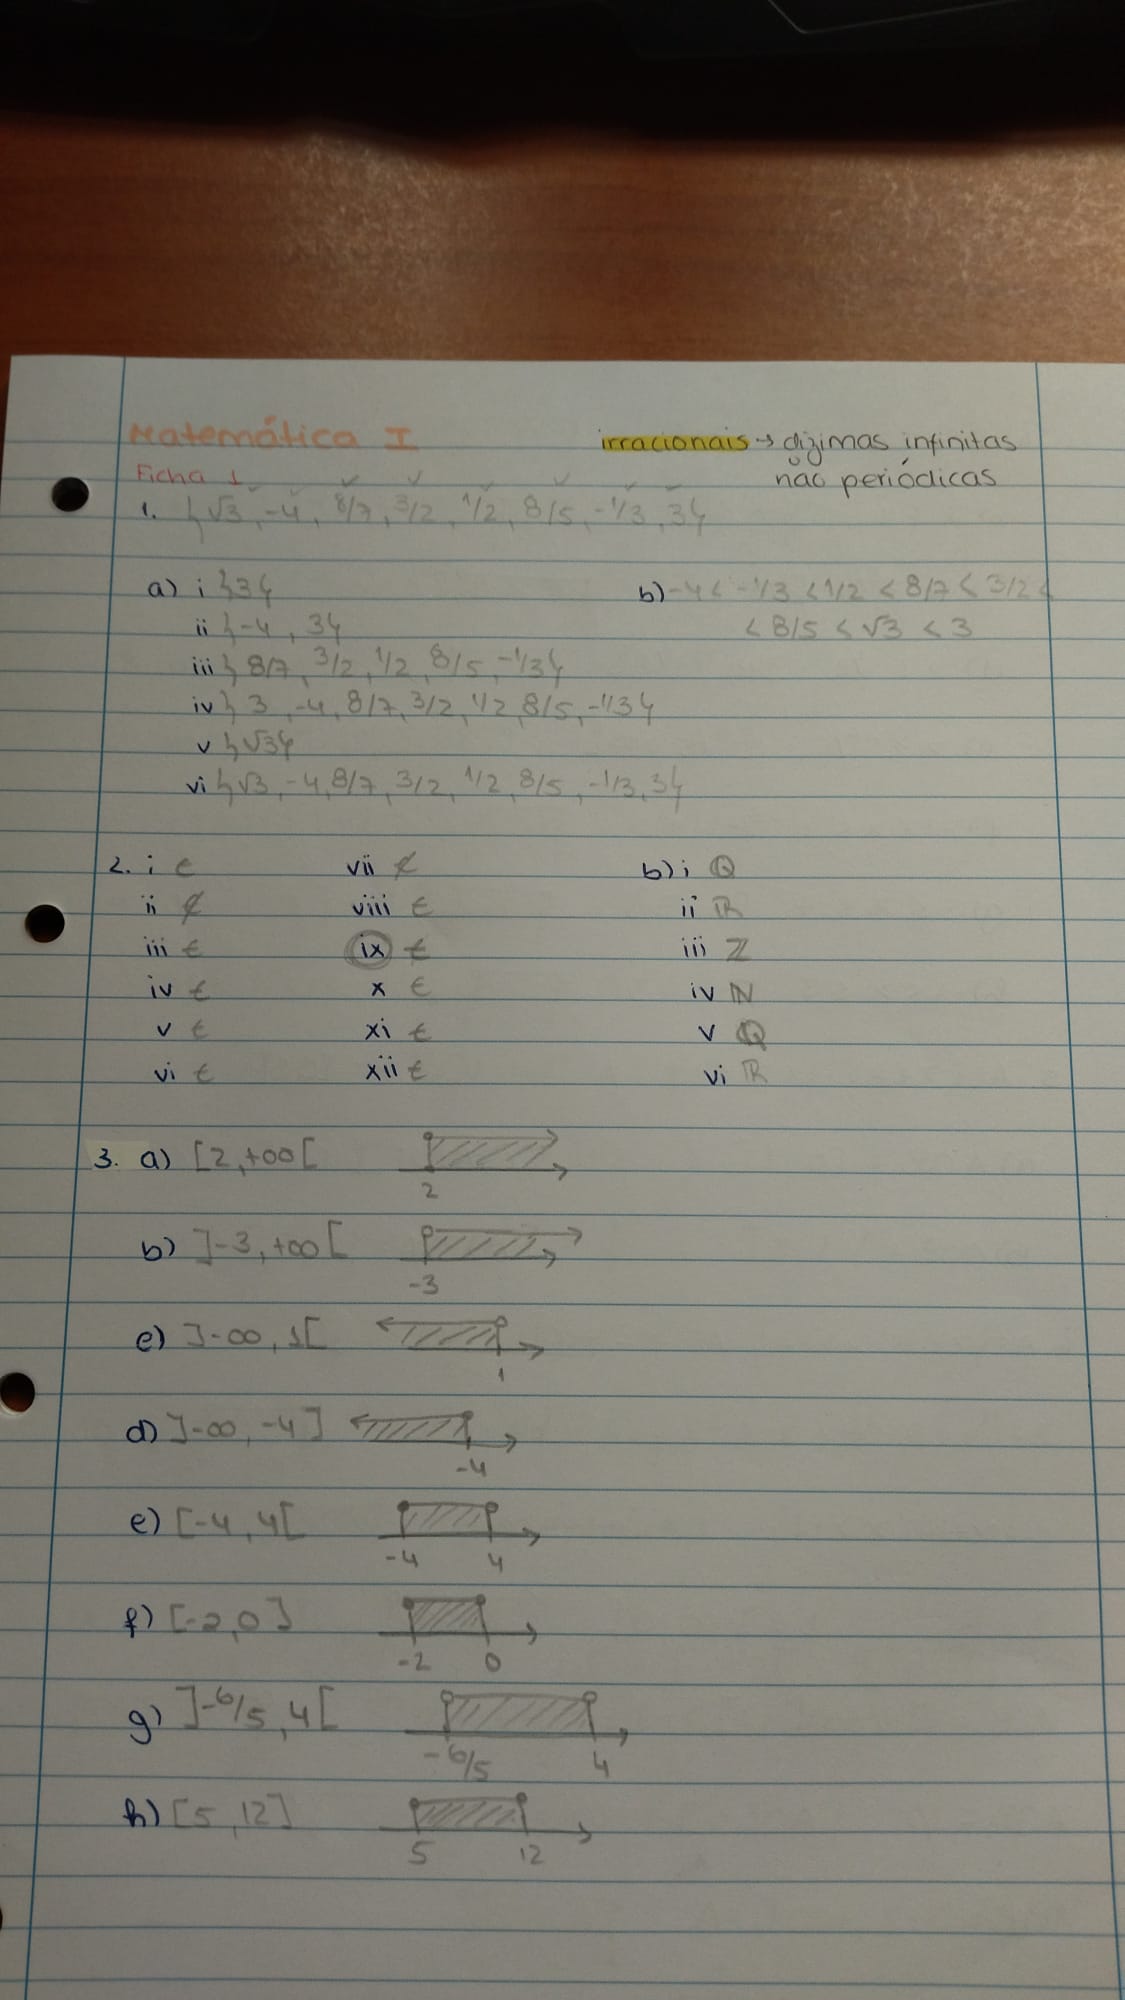 Matemática I
irracionais → dízimas infinitas
não periódicas
Ficha 1
1. {√3, -4, 8/7, 3/2, 1/2, 8/5, -1/3, 3}
a) i {3}
ii {-4, 3}
iii { 8/7, 3/2, 1/2, 8/5, -1/3}
iv { 3, -4, 8/7, 3/2, 1/2, 8/5, -1/3}
v {√3}
vi {√3, -4, 8/7, 3/2, 1/2, 8/5, -1/3, 3}
b) -4 < -1/3 < 1/2 < 8/7 < 3/2 <
< 8/5 < √3 < 3
2. i ∈
ii ∉
iii ∈
iv ∈
v ∈
vi ∈
vii ∉
viii ∈
ix
x ∈
xi ∈
xii ∈
b) i ℚ
ii ℝ
iii ℤ
iv ℕ
v ℚ
vi ℝ
3. a) [2, +∞[
2
b) ]-3, +∞[
-3
c) ]-∞, 1[
1
d) ]-∞, -4]
-4
e) [-4, 4[
-4 4
f) [-2, 0]
-2 0
g) ]-6/5, 4[
-6/5 4
h) [5, 12]
5 12